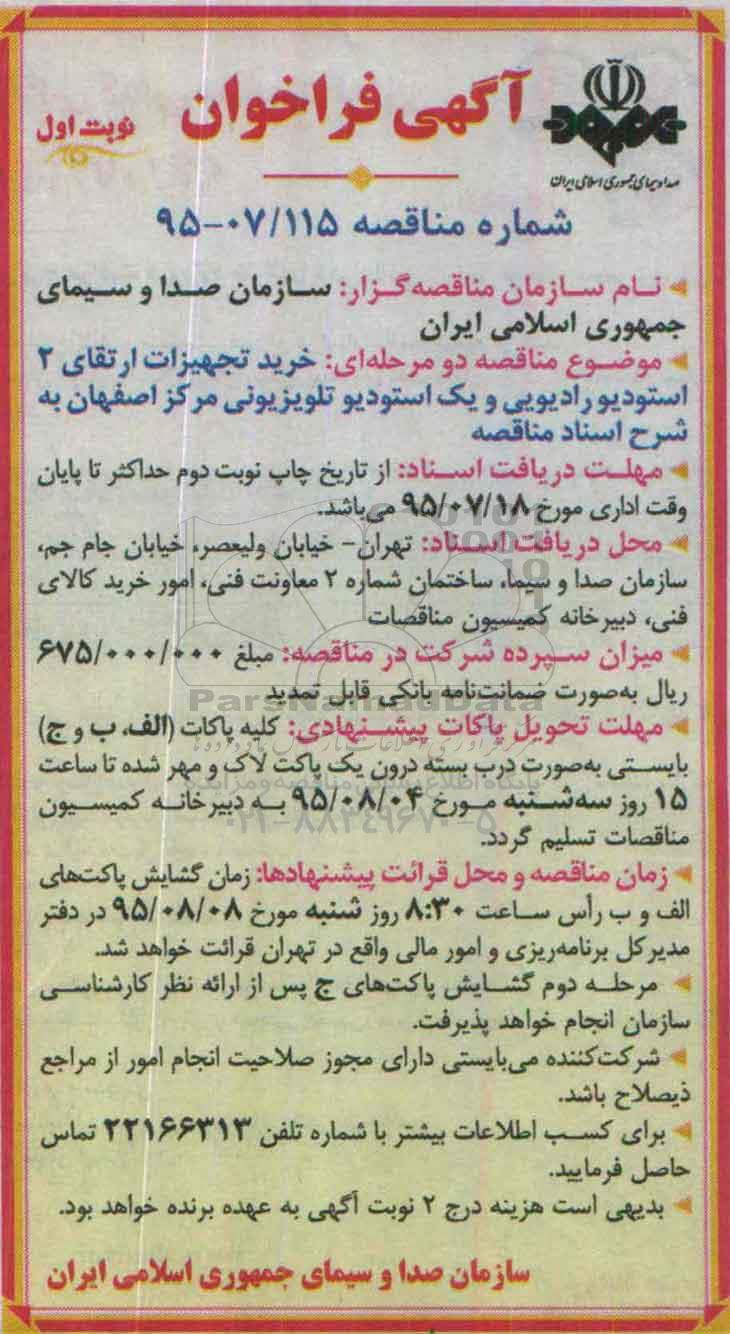 آگهی فراخوان
نوبت اول
صدا و سیمای جمهوری اسلامی ایران
شماره مناقصه ۹۵-۰۷/۱۱۵
نام سازمان مناقصه‌گزار: سازمان صدا و سیمای
جمهوری اسلامی ایران
موضوع مناقصه دو مرحله‌ای: خرید تجهیزات ارتقای ۲
استودیو رادیویی و یک استودیو تلویزیونی مرکز اصفهان به
شرح اسناد مناقصه
مهلت دریافت اسناد: از تاریخ چاپ نوبت دوم حداکثر تا پایان
وقت اداری مورخ ۹۵/۰۷/۱۸ می‌باشد.
محل دریافت اسناد: تهران- خیابان ولیعصر، خیابان جام جم،
سازمان صدا و سیما، ساختمان شماره ۲ معاونت فنی، امور خرید کالای
فنی، دبیرخانه کمیسیون مناقصات
میزان سپرده شرکت در مناقصه: مبلغ ۶۷۵/۰۰۰/۰۰۰
ریال به‌صورت ضمانت‌نامه بانکی قابل تمدید
ParsNamadData
مهلت تحویل پاکات پیشنهادی: کلیه پاکات (الف، ب و ج)
بایستی به‌صورت درب بسته درون یک پاکت لاک و مهر شده تا ساعت
۱۵ روز سه‌شنبه مورخ ۹۵/۰۸/۰۴ به دبیرخانه کمیسیون
۰۲۱-۸۸۳۴۹۶۷۰-۵
مناقصات تسلیم گردد.
زمان مناقصه و محل قرائت پیشنهادها: زمان گشایش پاکت‌های
الف و ب رأس ساعت ۸:۳۰ روز شنبه مورخ ۹۵/۰۸/۰۸ در دفتر
مدیرکل برنامه‌ریزی و امور مالی واقع در تهران قرائت خواهد شد.
مرحله دوم گشایش پاکت‌های ج پس از ارائه نظر کارشناسی
سازمان انجام خواهد پذیرفت.
شرکت‌کننده می‌بایستی دارای مجوز صلاحیت انجام امور از مراجع
ذیصلاح باشد.
برای کسب اطلاعات بیشتر با شماره تلفن ۲۲۱۶۶۳۱۳ تماس
حاصل فرمایید.
بدیهی است هزینه درج ۲ نوبت آگهی به عهده برنده خواهد بود.
سازمان صدا و سیمای جمهوری اسلامی ایران